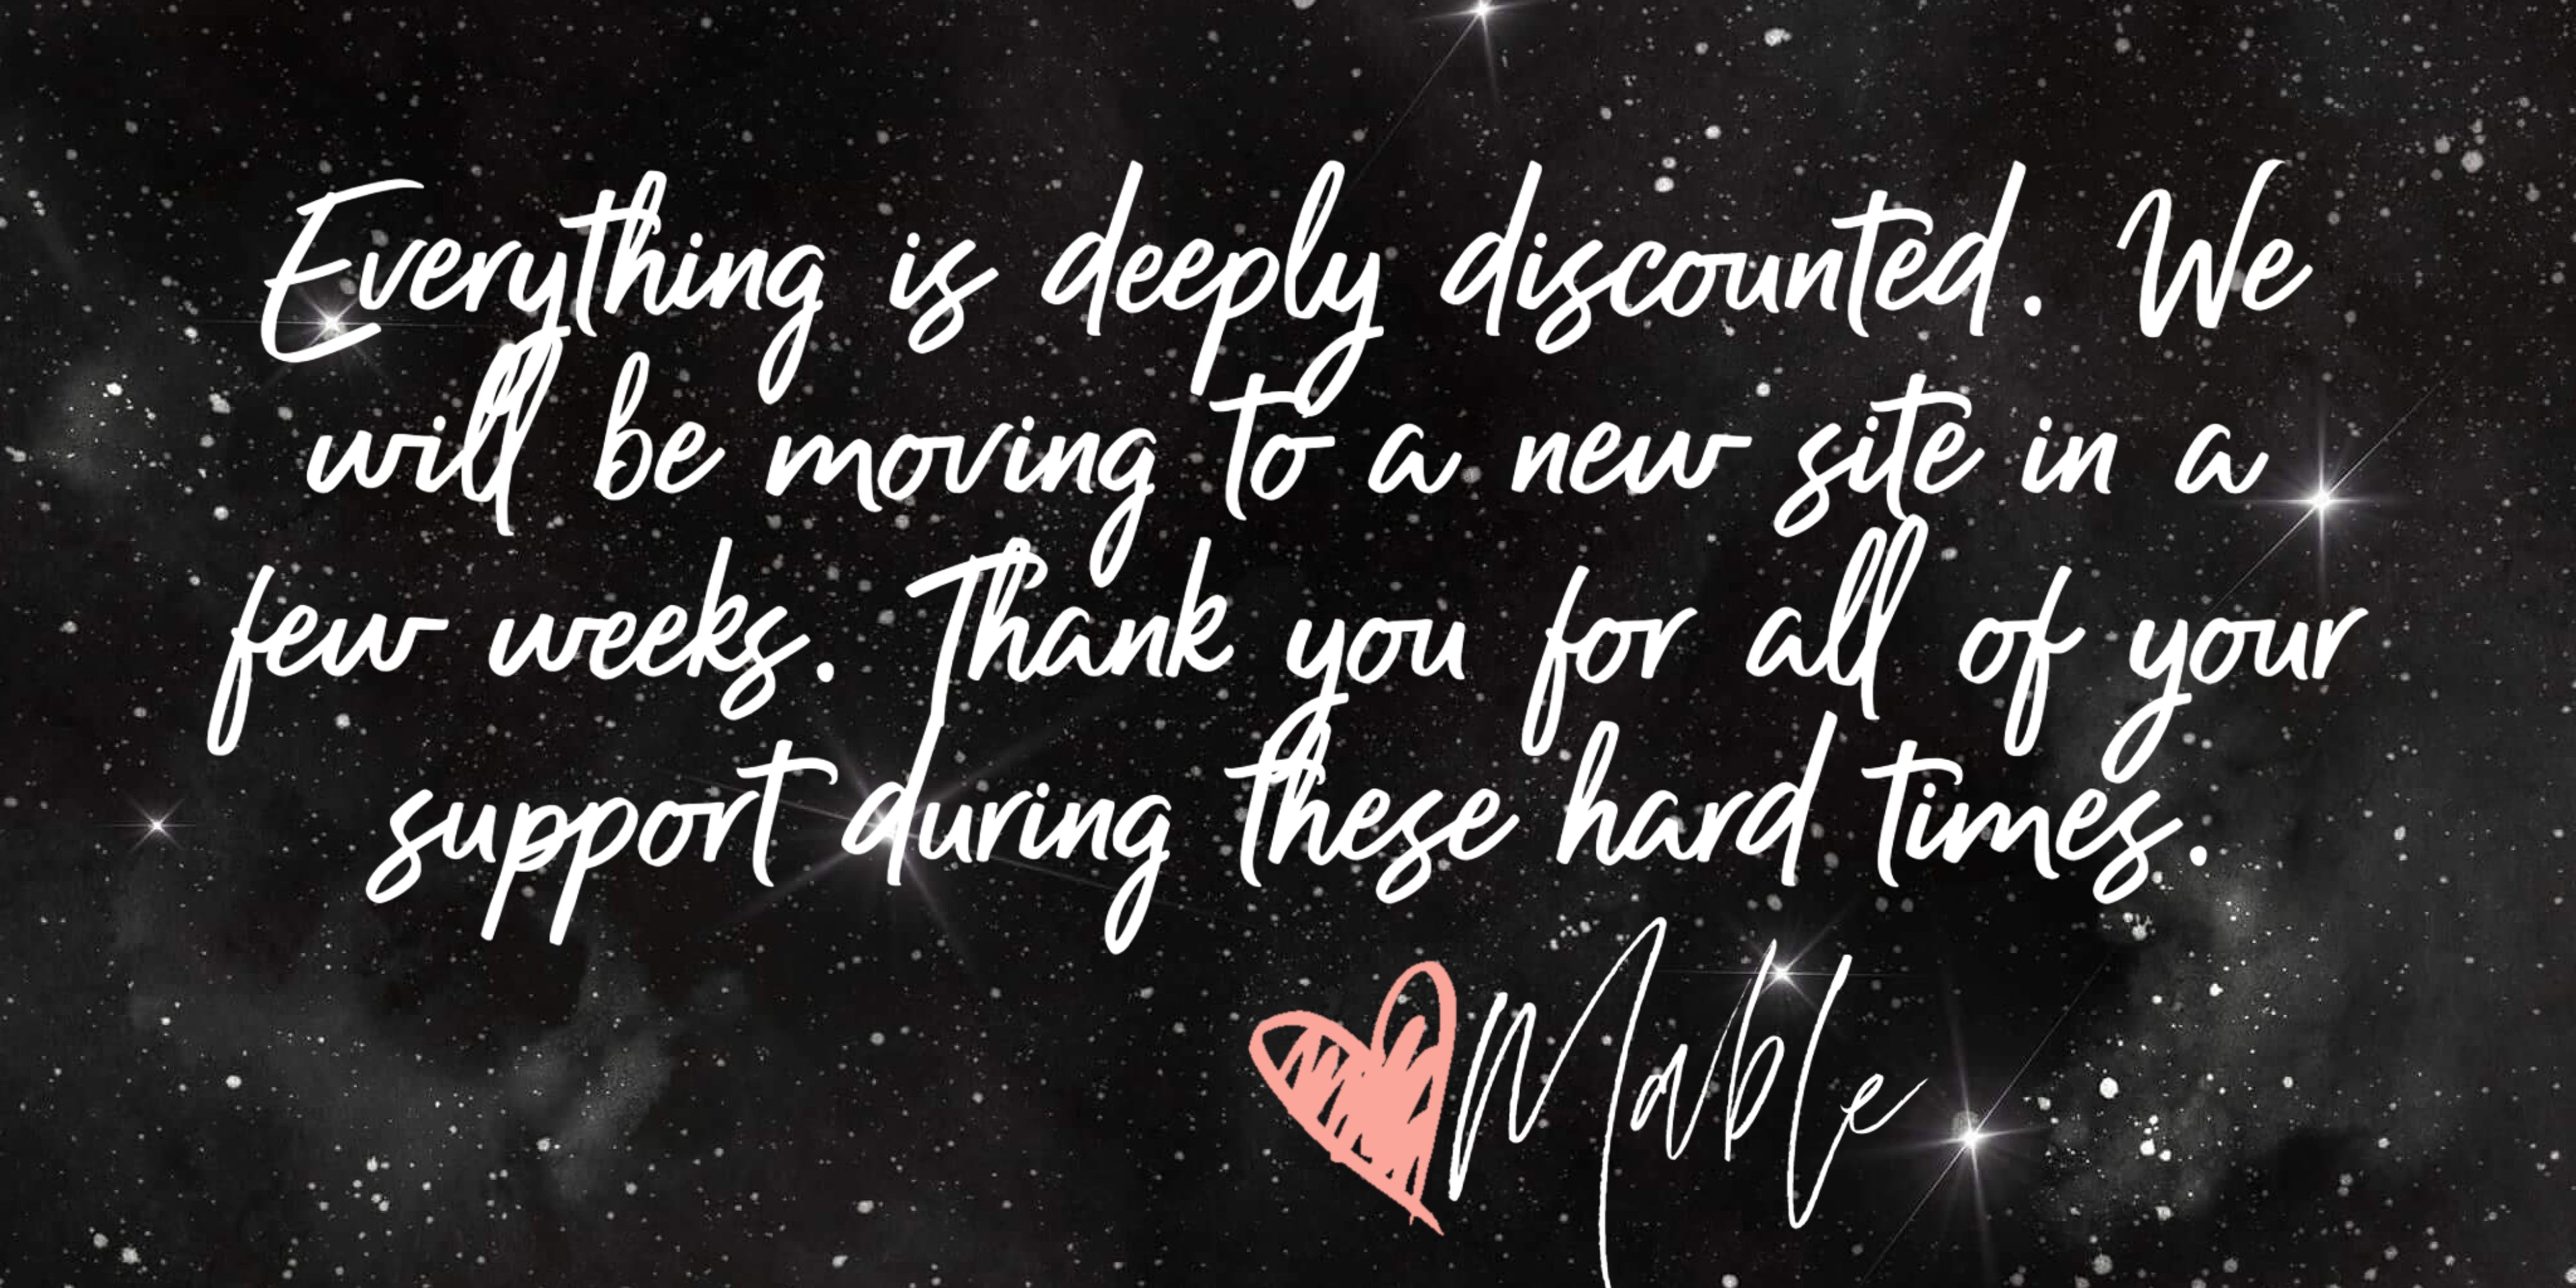 Everything is deeply discounted. We
will be moving to a new site in a
few weeks. Thank you for all of your
support during these hard times.
Mable